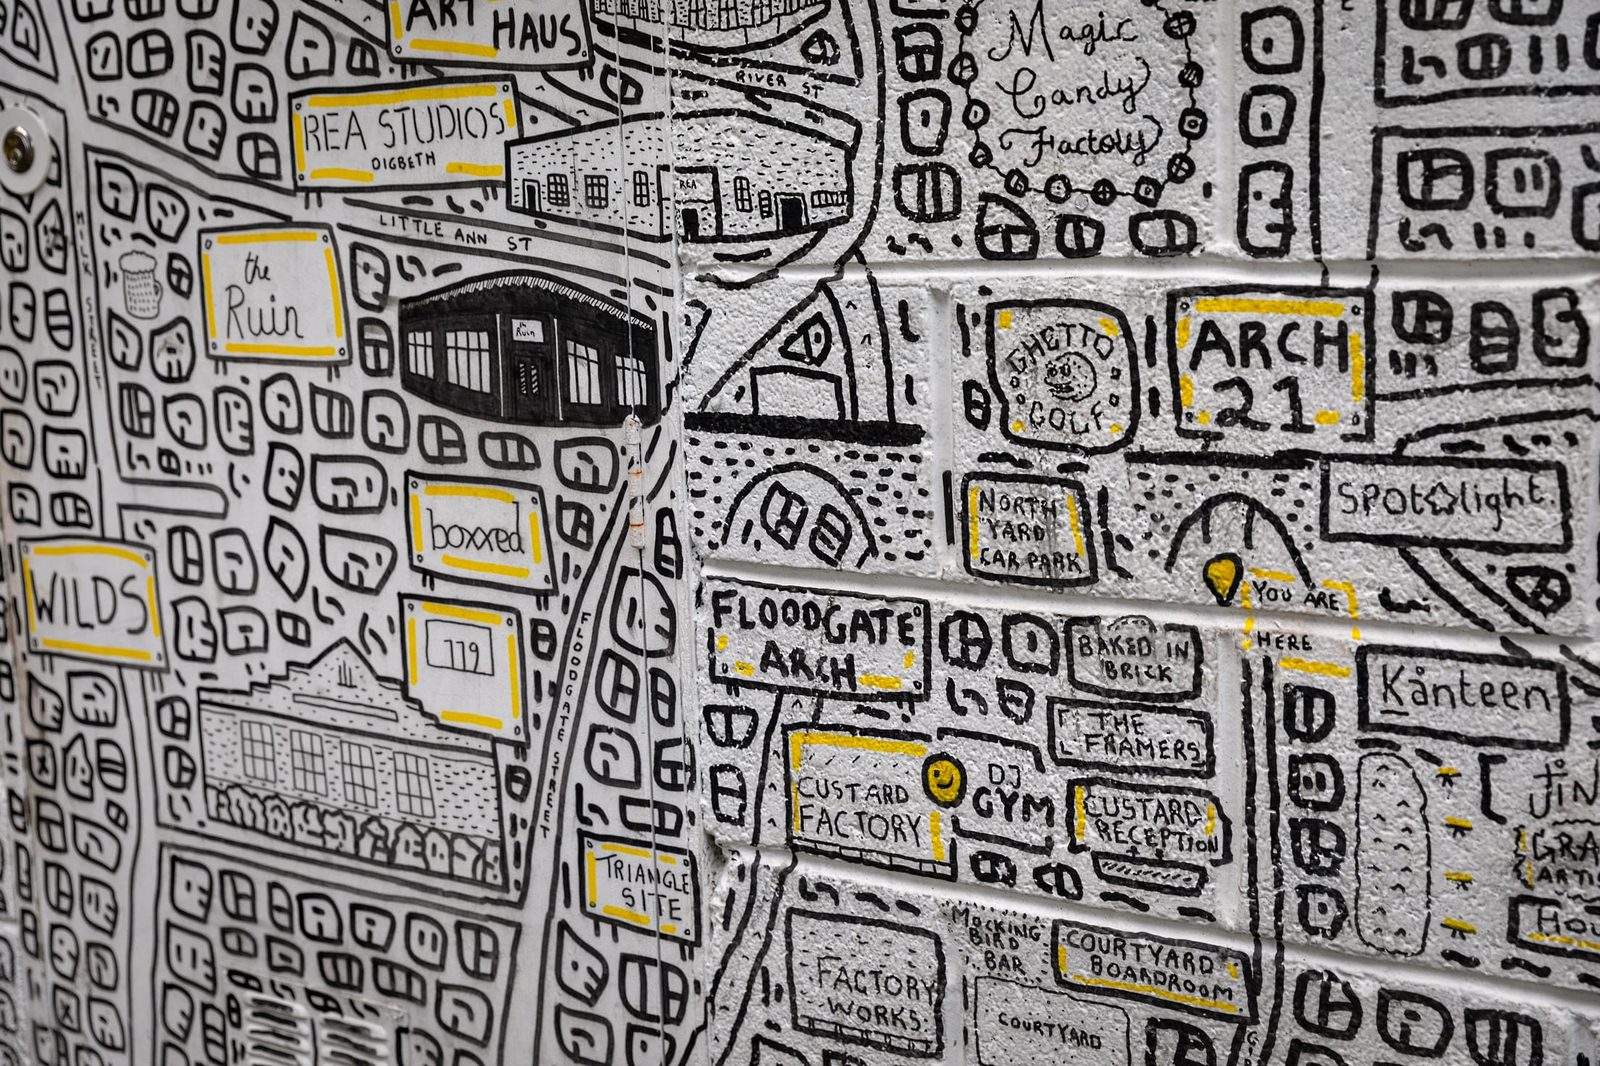 ART
HAUS
REA STUDIOS
DIGBETH
RIVER ST
Magic
Candy
Factory
REA
LITTLE ANN ST
MILK STREET
the
Ruin
the
Ruin
GHETTO
GOLF
ARCH
21
boxxed
NORTH
YARD
CAR PARK
SPOT☆light.
WILDS
779
YOU ARE
HERE
FLOODGATE
ARCH
BAKED IN
BRICK
Kånteen
THE
FRAMERS
FLOODGATE STREET
CUSTARD
FACTORY
DJ
GYM
CUSTARD
RECEPTION
JIN
GRA
ARTI
HOU
TRIANGLE
SITE
MOCKING
BIRD
BAR
COURTYARD
BOARDROOM
FACTORY
WORKS
COURTYARD
GIB